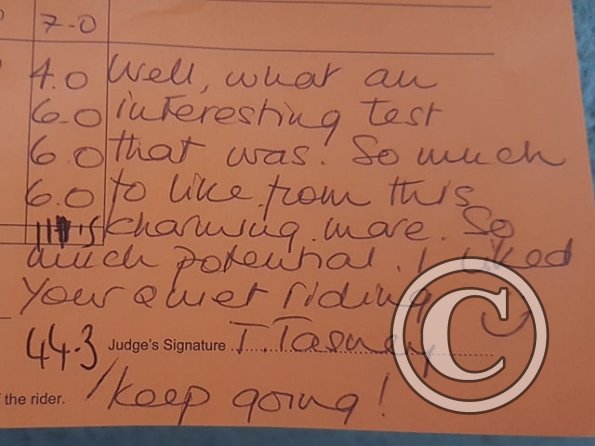 7.0
4.0 Well, what an
6.0 interesting test
6.0 that was. So much
6.0 to like from this
charming mare. So
much potential. I liked
your quiet riding
44.3 Judge's Signature T. Tasney
the rider. keep going!
©